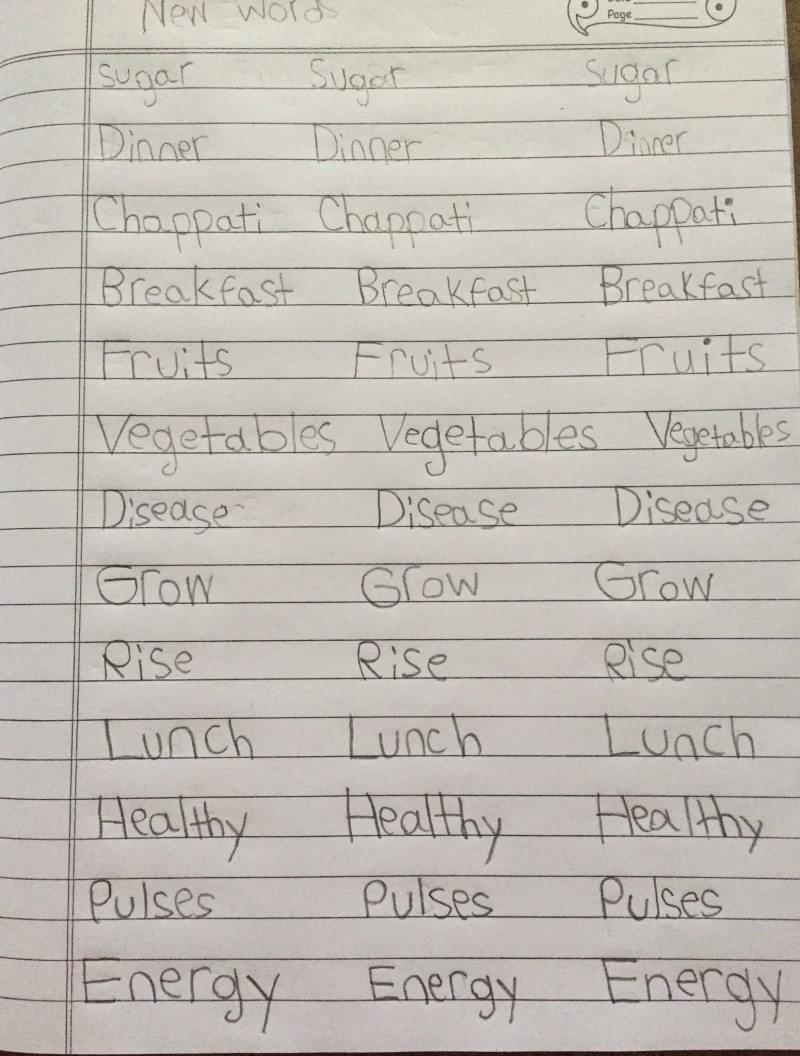 New Words
Page
sugar Sugar Sugar
Dinner Dinner Dinner
Chappati Chappati Chappati
Breakfast Breakfast Breakfast
Fruits Fruits Fruits
Vegetables Vegetables Vegetables
Disease Disease Disease
Grow Grow Grow
Rise Rise Rise
Lunch Lunch Lunch
Healthy Healthy Healthy
Pulses Pulses Pulses
Energy Energy Energy